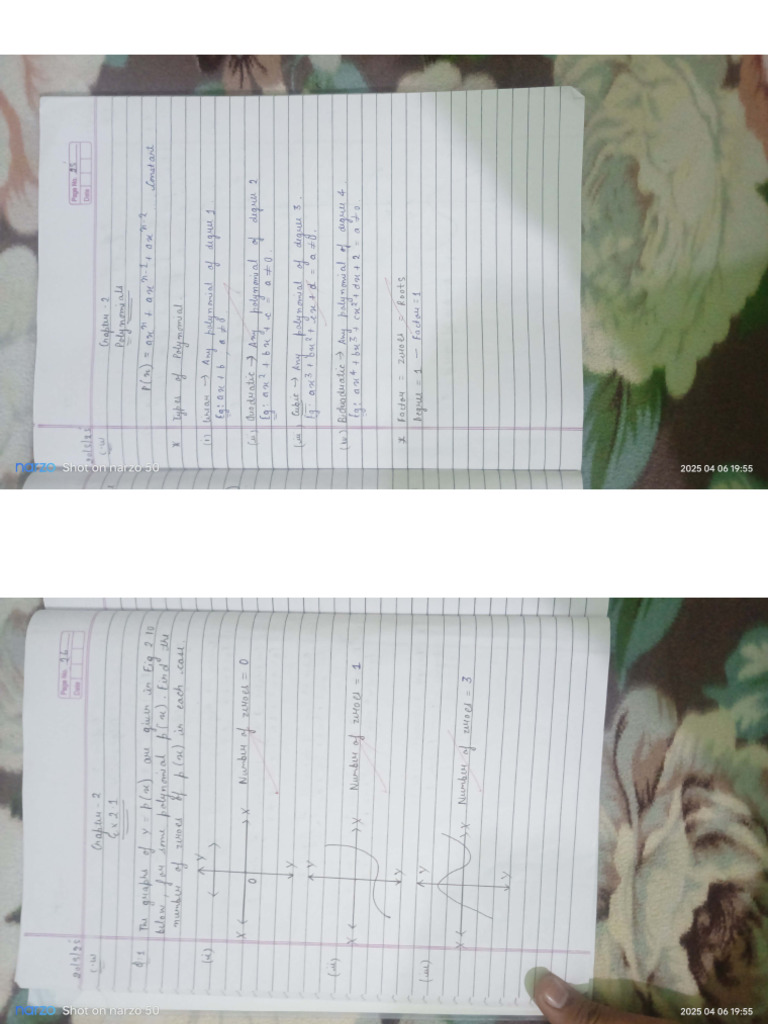 Page No. 25
Date
20/3/25
C.W
Chapter - 2
Polynomials
P(x) = axⁿ + axⁿ⁻¹ + axⁿ⁻² constant
* Types of Polynomial
(i) Linear → Any polynomial of degree 1
Eg: ax + b , a ≠ 0
(ii) Quadratic → Any polynomial of degree 2
Eg: ax² + bx + c = a ≠ 0.
(iii) Cubic → Any polynomial of degree 3.
Eg: ax³ + bx² + cx + d = a ≠ 0.
(iv) Bichaduatic → Any polynomial of degree 4
Eg: ax⁴ + bx³ + cx² + dx + 2 = a ≠ 0
* Factor = zeroes = Roots
Degree = 1 – Factor = 1
narzo Shot on narzo 50
2025 04 06 19:55
Page No. 26
Date
20/3/25
C.W
Chapter - 2
Ex 2.1
Q.1 The graphs of y = p(x) are given in Fig 2.10
below, for some polynomial p(x). Find the
number of zeroes of p(x) in each case.
(i) Y
X 0 X Number of zeroes = 0
Y
(ii) Y
X X Number of zeroes = 1
Y
(iii) Y
X X Number of zeroes = 3
Y
narzo Shot on narzo 50
2025 04 06 19:55